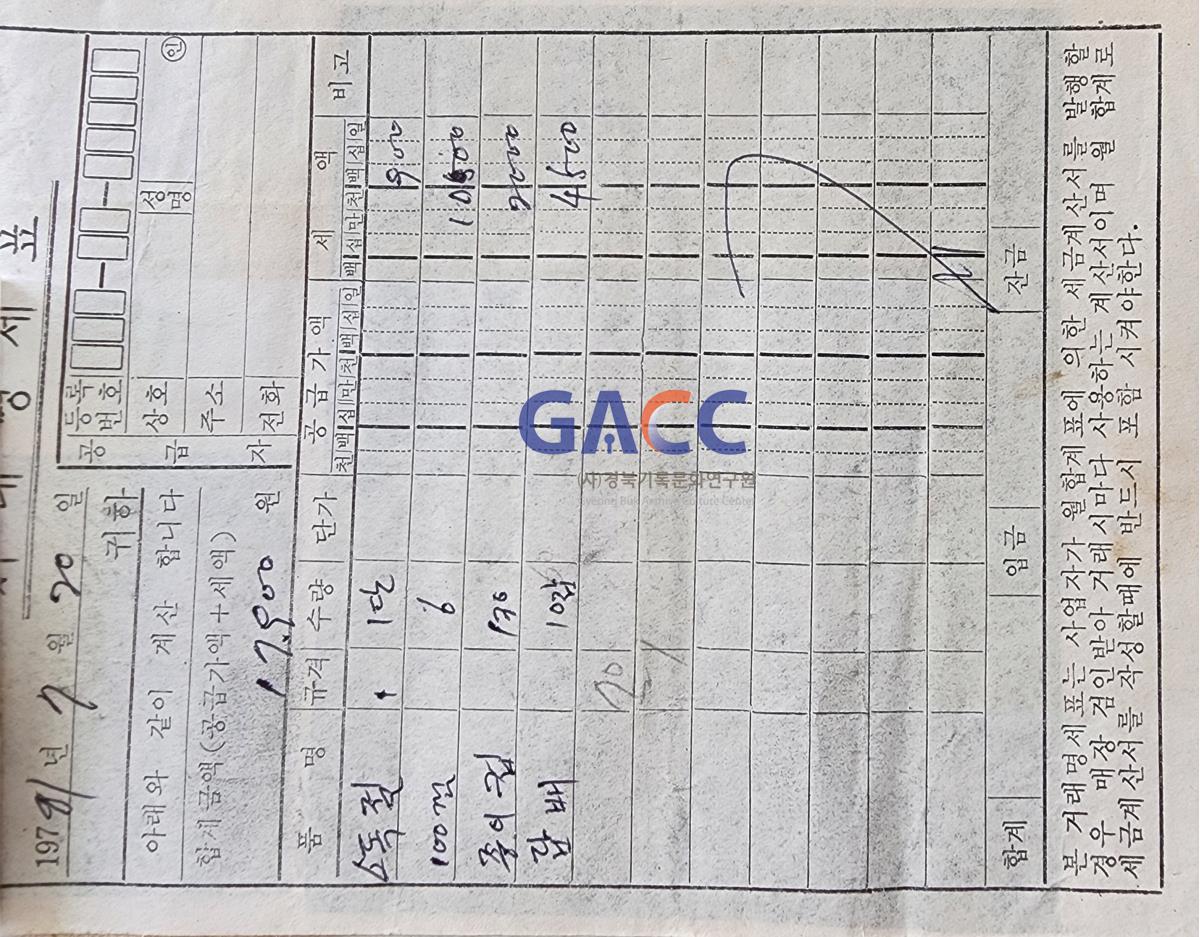 거래명세표
1981년 7월 20일
귀하
아래와 같이 계산 합니다
합계금액(공급가액+세액)
17,900 원
공급자
등록번호
상호 성명 ㊞
주소
전화
품명 규격 수량 단가 공급가액 세액 비고
천백십만천백십일 백십만천백십일
소독절 1단 900
100절 6 10500
종이컵 2000
담배 10갑 4500
20
합계 입금 잔금
본 거래명세표는 사업자가 월합계표에 의한 세금계산서를 발행할
경우 매장 검인받아 거래시마다 사용하는 계산서이며 월 합계로
세금계산서를 작성할때에 반드시 포함 시켜야한다.
GACC
(사)경북기록문화연구원